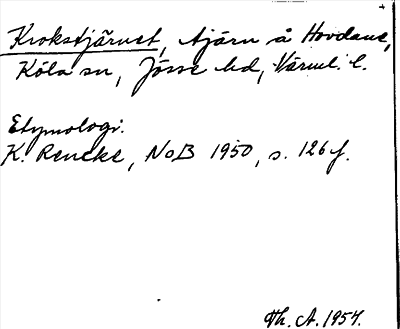 Krokstjärnet, tjärn å Hovdane,
Köla sn, Jösse hd, Värml. l.
Etymologi.
K. Rencke, NoB 1950, s. 126 f.
Th. A. 1957.